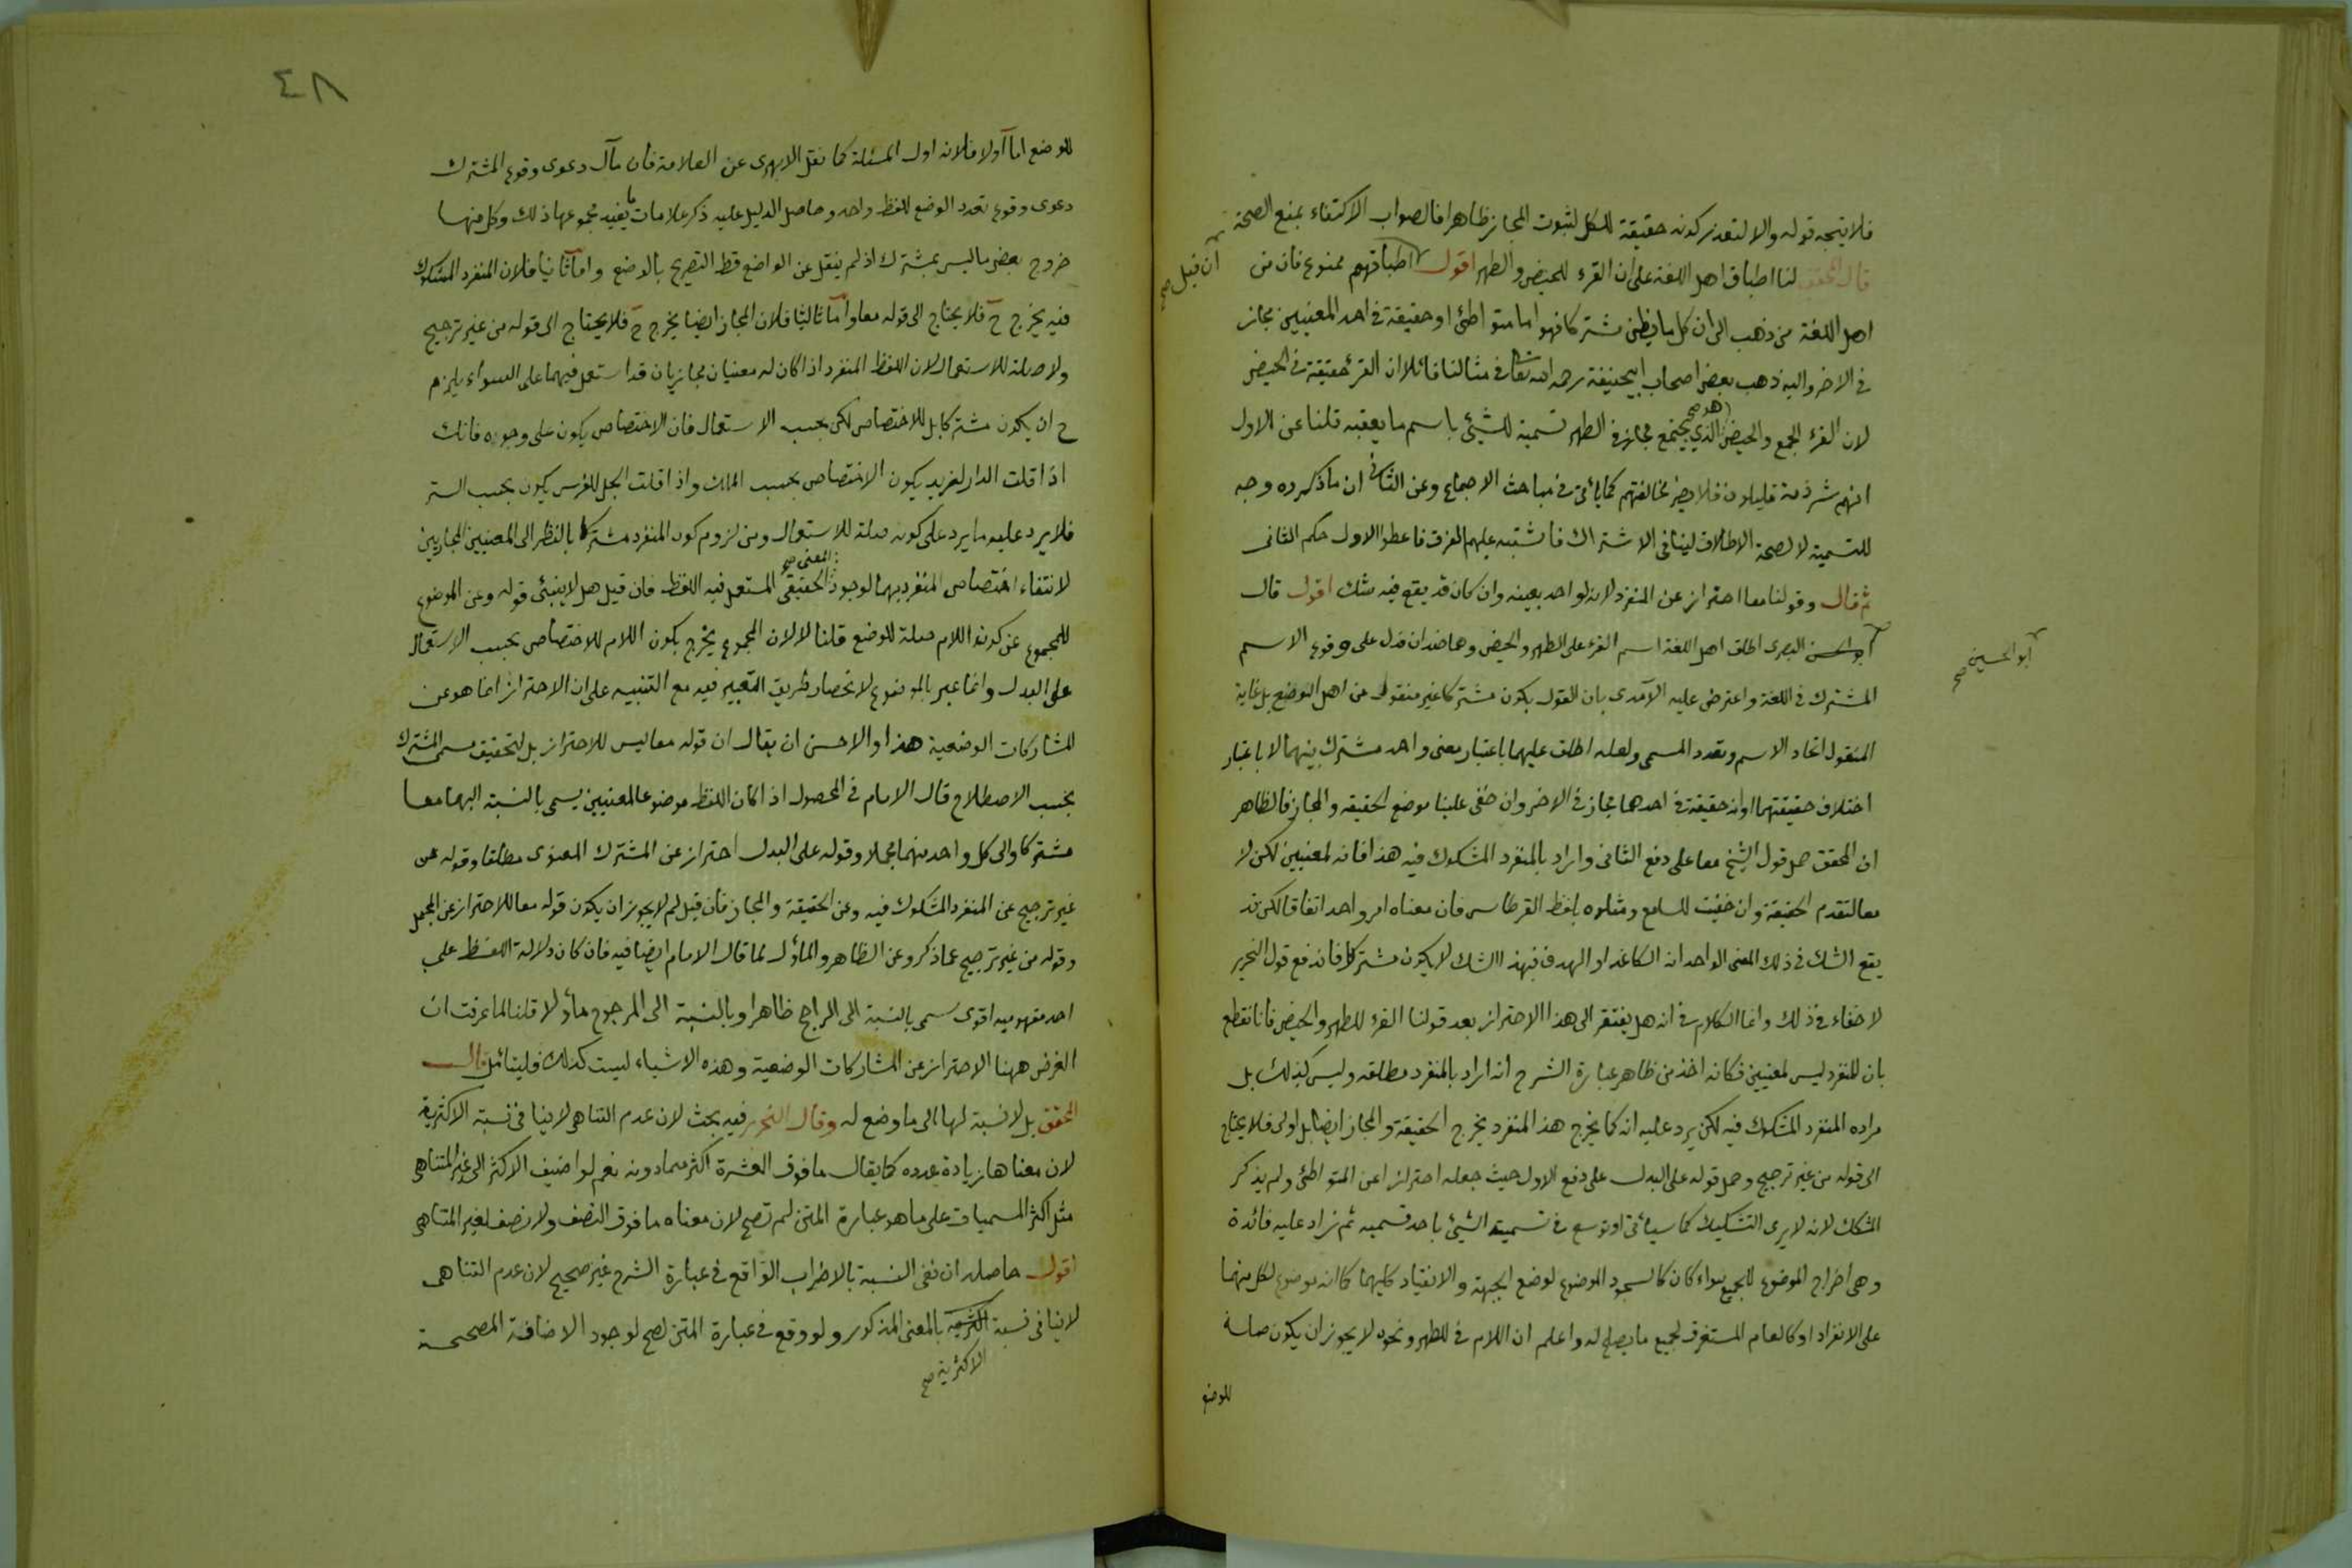 فلا يتجه قوله والا لتعذر كونه حقيقة للكل لثبوت المجاز ظاهرا فالصواب الاكتفاء بمنع الصحة
قال المحقق لنا اطباق اهل اللغة على ان القرء للحيض والطهر اقول ان قيل صح اطباقهم ممنوع فان من
اهل اللغة من ذهب الى ان كل ما يظن مشتركا فهو اما متواطئ او حقيقة في احد المعنيين مجاز
في الاخر واليه ذهب بعض اصحاب ابيحنيفة رحمه الله تعا في مثالنا قائلا ان القرء حقيقة في الحيض
لان القرء الجمع والحيض هو صح الذي يجتمع مجاز في الطهر تسمية للشيئ باسم ما يعقبه قلنا عن الاول
انهم شرذمة قليلون فلا يضر مخالفتهم كما يأتى في مباحث الاجماع وعن الثانى ان ما ذكروه وجه
للتسمية لا لصحة الاطلاق لينافى الاشتراك فاشتبه عليهم الفرق فاعطوا الاول حكم الثانى
ثم قال وقولنا معا احتراز عن المنفرد لانه لواحد بعينه وان كان قد يقع فيه شك اقول قال
ابو الحسين صح البصرى اطلق اهل اللغة اسم القرء على الطهر والحيض وهما ضدان فدل على وقوع الاسم
المشترك في اللغة واعترض عليه الآمدى بان القول بكون مشتركا غير منقول من اهل الوضع بل غاية
المنقول اتحاد الاسم وتعدد المسمى ولعله اطلق عليهما باعتبار معنى واحد مشترك بينهما لا باعتبار
اختلاف حقيقتهما او انه حقيقة في احدهما مجاز في الاخر وان خفى علينا موضع الحقيقة والمجاز فالظاهر
ان المحقق حمل قول الشيخ معا على دفع الثانى واراد بالمنفرد المشكوك فيه هذا فانه لمعنيين لكن لا
معا لتقدم الحقيقة وان خفيت للسامع ومثلوه بلفظ القرطاس فان معناه امر واحد اتفاقا لكن قد
يقع الشك في ذلك المعنى الواحد انه الكاغد او الهدف فبهذا الشك لا يكون مشتركا فاندفع قول النحرير
لا خفاء في ذلك وانما الكلام في انه هل يفتقر الى هذا الاحتراز بعد قولنا القرء للطهر والحيض فانا نقطع
بان المنفرد ليس لمعنيين فكانه اخذ من ظاهر عبارة الشرح انه اراد بالمنفرد مطلقه وليس كذلك بل
مراده المنفرد المشكوك فيه لكن يرد عليه انه كما يخرج هذ المنفرد يخرج الحقيقة والمجاز ايضا بل اولى فلا يحتاج
الى قوله من غير ترجيح وحمل قوله على البدل على دفع الاول حيث جعله احترازا عن المتواطئ ولم يذكر
المشكك لانه لا يرى التشكيك كما سيأتى او توسع في تسمية الشيئ باحد قسميه ثم زاد عليه فائدة
وهى اخراج الموضوع للجميع سواء كان كالسجود الموضوع لوضع الجبهة والانقياد كليهما كما انه موضوع لكل منهما
على الانفراد او كالعام المستغرق لجميع ما يصلح له واعلم ان اللام في للطهر ونحوه لا يجوز ان يكون صلة
للوضع
٤٨
للوضع اما اولا فلانه اول المسئلة كما نقل الابهرى عن العلامة فان مآل دعوى وقوع المشترك
دعوى وقوع تعدد الوضع للفظ واحد وحاصل الدليل عليه ذكر علامات ما يفيد مجموعها ذلك وكل منها
خروج بعض ما ليس بمشترك اذ لم ينقل عن الواضع قط التصريح بالوضع واما ثانيا فلان المنفرد المشكوك
فيه يخرج ح فلا يحتاج الى قوله معا واما ثالثا فلان المجاز ايضا يخرج ح فلا يحتاج الى قوله من غير ترجيح
ولا صلة للاستعمال لان اللفظ المنفرد اذا كان له معنيان مجازيان قد استعمل فيهما على السواء يلزم
ح ان يكون مشتركا بل للاختصاص لكن بحسب الاستعمال فان الاختصاص يكون على وجوه فانك
اذا قلت الدار لزيد يكون الاختصاص بحسب الملك واذا قلت الجل للفرس يكون بحسب الستر
فلا يرد عليه ما يرد على كونه صلة للاستعمال ومن لزوم كون المنفرد مشتركا بالنظر الى المعنيين المجازيين
لانتفاء اختصاص المنفرد بهما لوجود المعنى صح الحقيقى المستعمل فيه اللفظ فان قيل هل لا ينبئى قوله وعن الموضوع
للمجموع عن كون اللام صلة للوضع قلنا لا لان المجموع يخرج بكون اللام للاختصاص بحسب الاستعمال
على البدل وانما عبر بالموضوع لانحصار طريق التعبير فيه مع التنبيه على ان الاحتراز انما هو عن
المشاركات الوضعية هذا والاحسن ان يقال ان قوله معا ليس للاحتراز بل لتحقيق مسمى المشترك
بحسب الاصطلاح قال الامام في المحصول اذا كان اللفظ موضوعا لمعنيين يسمى بالنسبة اليهما معا
مشتركا والى كل واحد منهما مجملا وقوله على البدل احتراز عن المشترك المعنوى مطلقا وقوله من
غير ترجيح عن المنفرد المشكوك فيه وعن الحقيقة والمجاز فان قيل لم لا يجوز ان يكون قوله معا للاحتراز عن المجمل
وقوله من غير ترجيح عما ذكر وعن الظاهر والمأول لما قال الامام ايضا فيه فان كان دلالة اللفظ على
احد مفهوميه اقوى سمى بالنسبة الى الراجح ظاهرا وبالنسبة الى المرجوح مأولا قلنا لما عرفت ان
الغرض ههنا الاحتراز عن المشاركات الوضعية وهذه الاشياء ليست كذلك فليتأمل قال
المحقق بل لا نسبة لها الى ما وضع له وقال النحرير فيه بحث لان عدم التناهى لا ينافى نسبة الاكثرية
لان معناها زيادة عدده كما يقال ما فوق العشرة اكثر مما دونه نعم لو اضيف الاكثر الى غير المتناهى
مثل اكثر المسميات على ما هو عبارة المتن لم تصح لان معناه ما فوق النصف ولا نصف لغير المتناهى
اقول حاصله ان نفى النسبة بالاضراب الواقع في عبارة الشرح غير صحيح لان عدم التناهى
لا ينافى نسبة الاكثرية صح بالمعنى المذكور ولو وقع في عبارة المتن لصح لوجود الاضافة المصححة